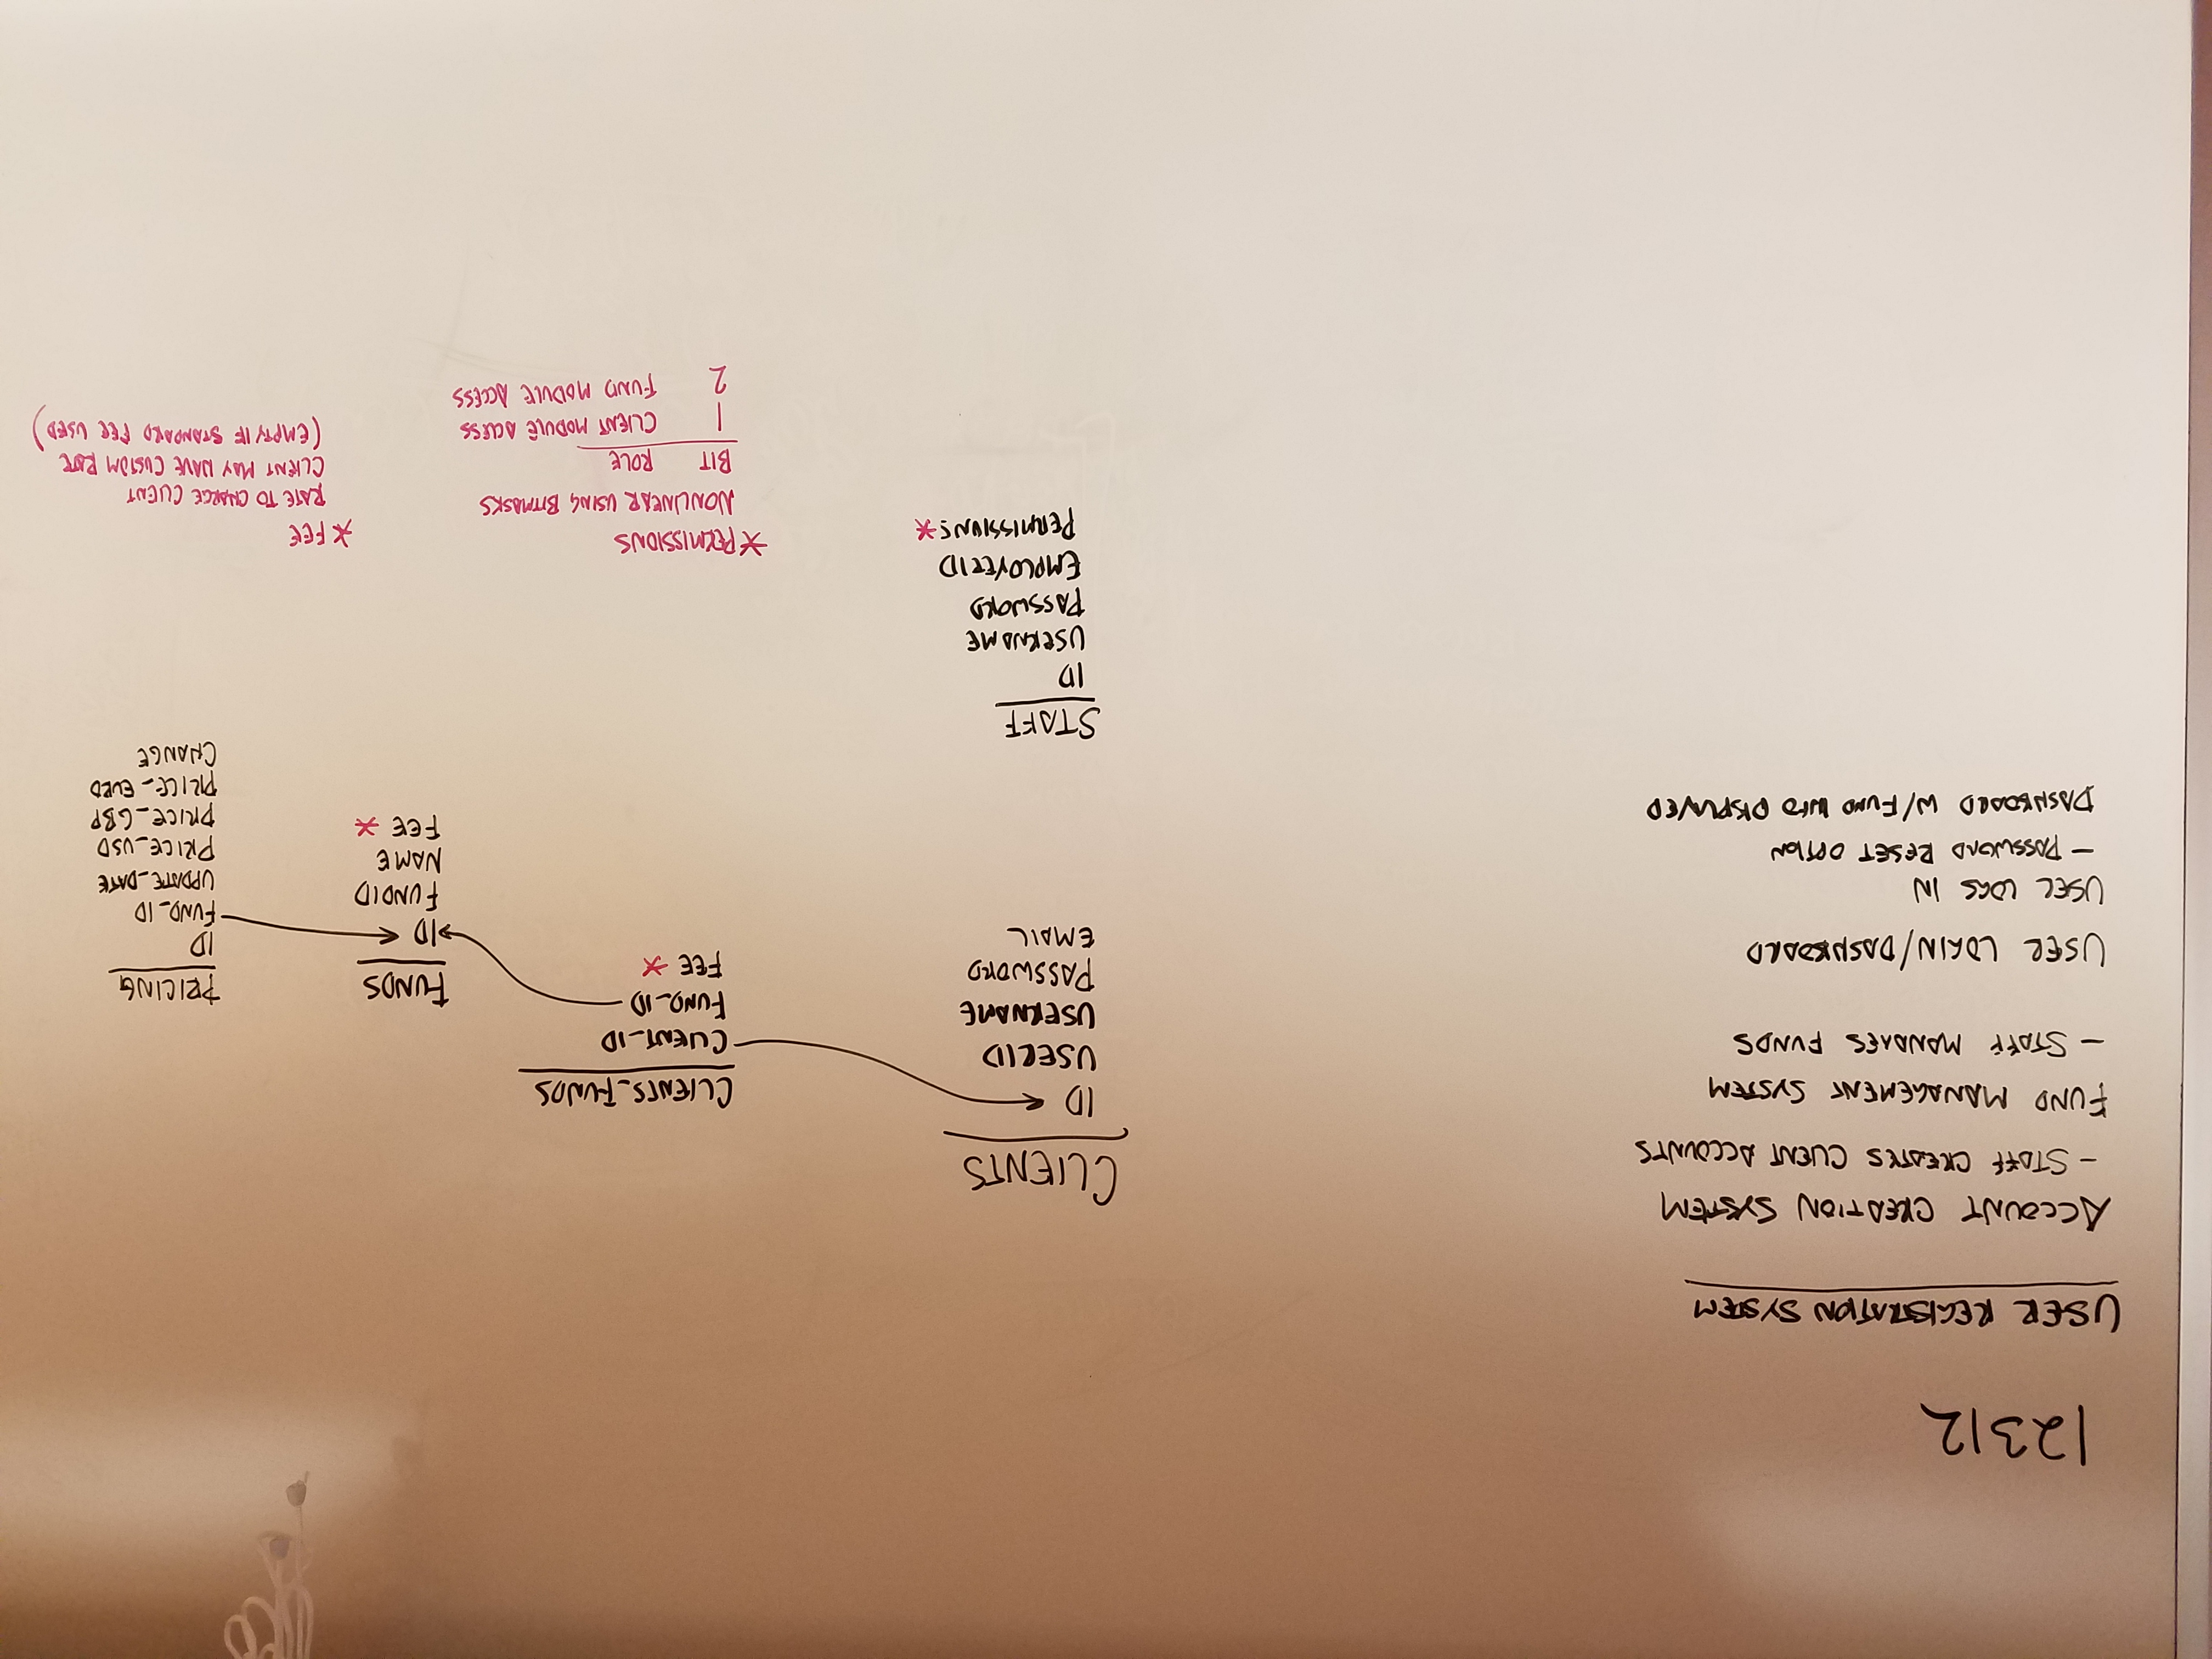 12312
USER REGISTRATION SYSTEM
ACCOUNT CREATION SYSTEM
- STAFF CREATES CLIENT ACCOUNTS
FUND MANAGEMENT SYSTEM
- STAFF MANAGES FUNDS
USER LOGIN/DASHBOARD
USER LOGS IN
- PASSWORD RESET OPTION
DASHBOARD W/ FUND INFO DISPLAYED
CLIENTS
ID
USERID
USERNAME
PASSWORD
EMAIL
CLIENTS_FUNDS
CLIENT_ID
FUND_ID
FEE *
FUNDS
ID
FUNDID
NAME
FEE *
PRICING
ID
FUND_ID
UPDATE_DATE
PRICE_USD
PRICE_GBP
PRICE_EURO
CHANGE
STAFF
ID
USERNAME
PASSWORD
EMPLOYEEID
PERMISSIONS*
*PERMISSIONS
NONLINEAR USING BITMASKS
BIT ROLE
1 CLIENT MODULE ACCESS
2 FUND MODULE ACCESS
* FEE
RATE TO CHARGE CLIENT
CLIENT MAY HAVE CUSTOM RATE
(EMPTY IF STANDARD FEE USED)